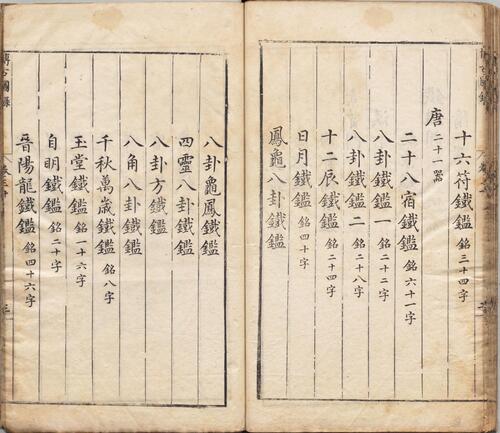 十六符鐵鑑銘三十四字
唐二十一器
二十八宿鐵鑑銘六十一字
八卦鐵鑑一銘二十二字
八卦鐵鑑二銘二十八字
十二辰鐵鑑銘二十四字
日月鐵鑑銘四十字
鳳龜八卦鐵鑑
八卦龜鳳鐵鑑
四靈八卦鐵鑑
八卦方鐵鑑
八角八卦鐵鑑
千秋萬歲鐵鑑銘八字
玉堂鐵鑑銘一十六字
自明鐵鑑銘二十字
晉陽龍鐵鑑銘四十六字
博古圖錄